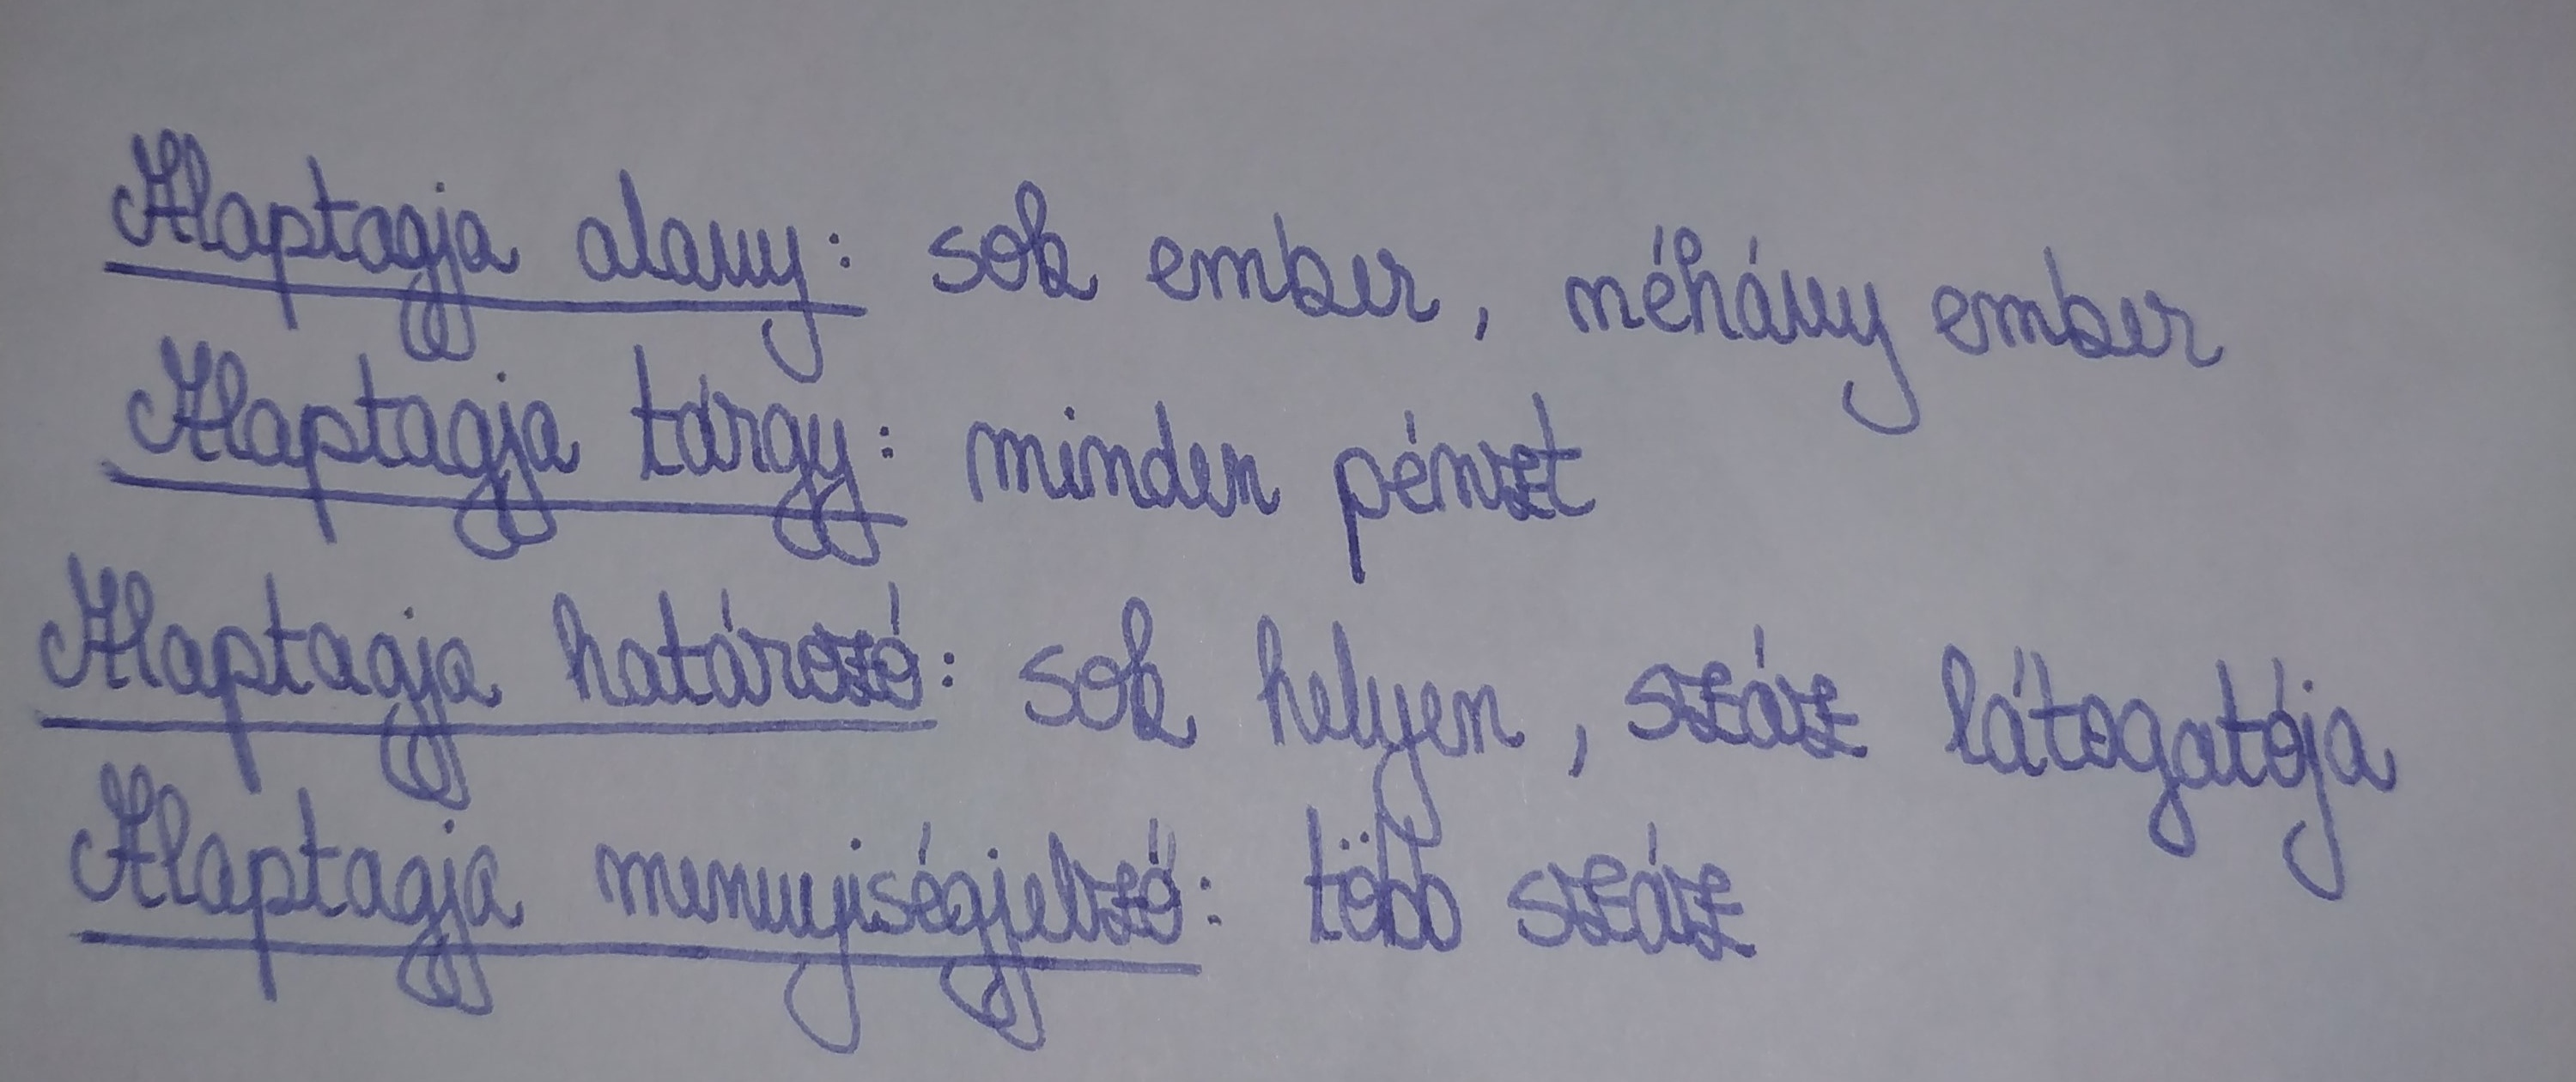 Alaptagja alany: sok ember, néhány ember
Alaptagja tárgy: minden pénzt
Alaptagja határozó: sok helyen, száz látogatója
Alaptagja mennyiségjelző: több száz